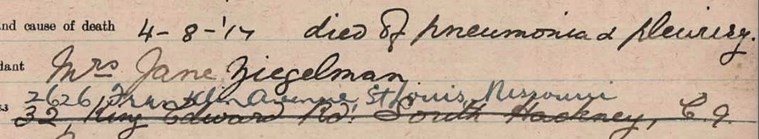 nd cause of death 4-8-'17 died of pneumonia & pleurisy.
dant Mrs Jane Ziegelman
2626 Franklin Avenue St Louis, Missouri
ss 32, King Edward Rd. South Hackney, E.9.